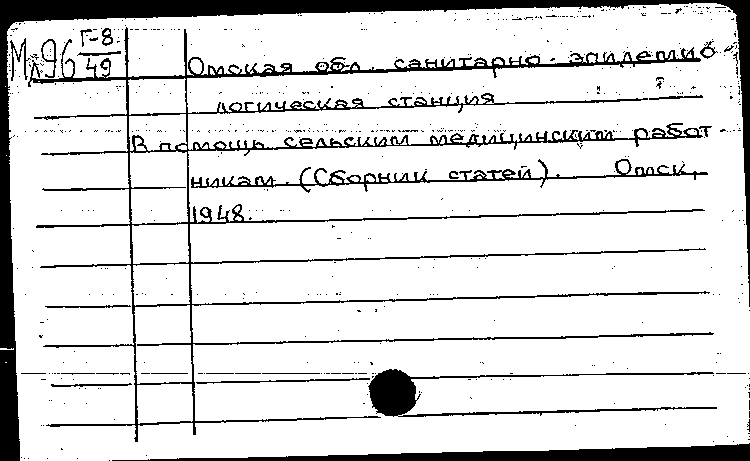 Мл96 Г-8
49
Омская обл. санитарно-эпидемио-
логическая станция
В помощь сельским медицинским работ-
никам. (Сборник статей). Омск,
1948.